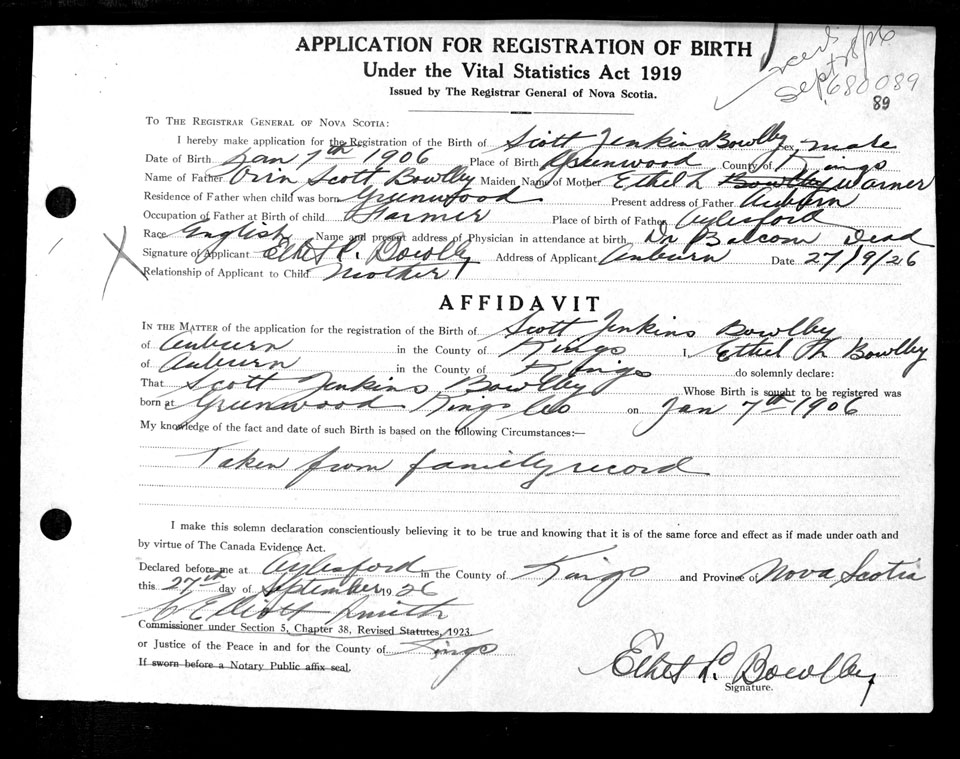 APPLICATION FOR REGISTRATION OF BIRTH
Under the Vital Statistics Act 1919
Issued by The Registrar General of Nova Scotia.
Sept 28/26
680089
89
TO THE REGISTRAR GENERAL OF NOVA SCOTIA:
I hereby make application for the Registration of the Birth of Scott Jenkins Bowlby Sex male
Date of Birth Jan 7th 1906 Place of Birth Greenwood County of Kings
Name of Father Orin Scott Bowlby Maiden Name of Mother Ethel L Bowlby Warner
Residence of Father when child was born Greenwood Present address of Father Auburn
Occupation of Father at Birth of child Farmer Place of birth of Father Aylesford
Race English Name and present address of Physician in attendance at birth Dr Balcom Dead
Signature of Applicant Ethel L. Bowlby Address of Applicant Auburn Date 27/9/26
Relationship of Applicant to Child Mother
AFFIDAVIT
IN THE MATTER of the application for the registration of the Birth of Scott Jenkins Bowlby
of Auburn in the County of Kings I, Ethel Bowlby
of Auburn in the County of Kings do solemnly declare:
That Scott Jenkins Bowlby Whose Birth is sought to be registered was
born at Greenwood Kings Co on Jan 7th 1906
My knowledge of the fact and date of such Birth is based on the following Circumstances:—
Taken from family record
I make this solemn declaration conscientiously believing it to be true and knowing that it is of the same force and effect as if made under oath and
by virtue of The Canada Evidence Act.
Declared before me at Aylesford in the County of Kings and Province of Nova Scotia
this 27th day of September 1926
Elliott Smith
Commissioner under Section 5, Chapter 38, Revised Statutes, 1923.
or Justice of the Peace in and for the County of Kings
If sworn before a Notary Public affix seal.
Ethel L. Bowlby
Signature.